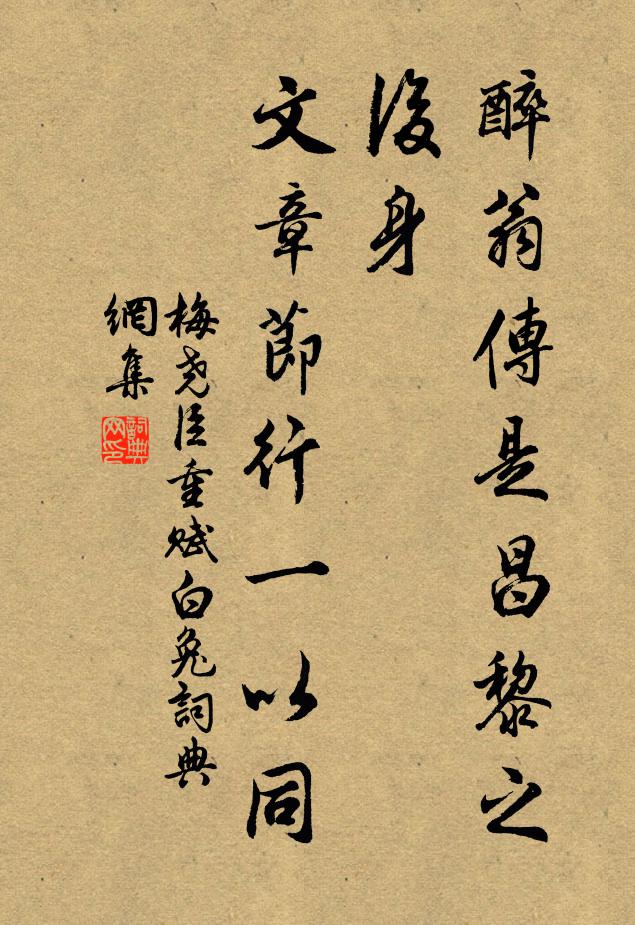 醉翁傳是昌黎之
後身
文章節行一以同
梅尧臣重赋白兔詞典
網集
詞典
网印